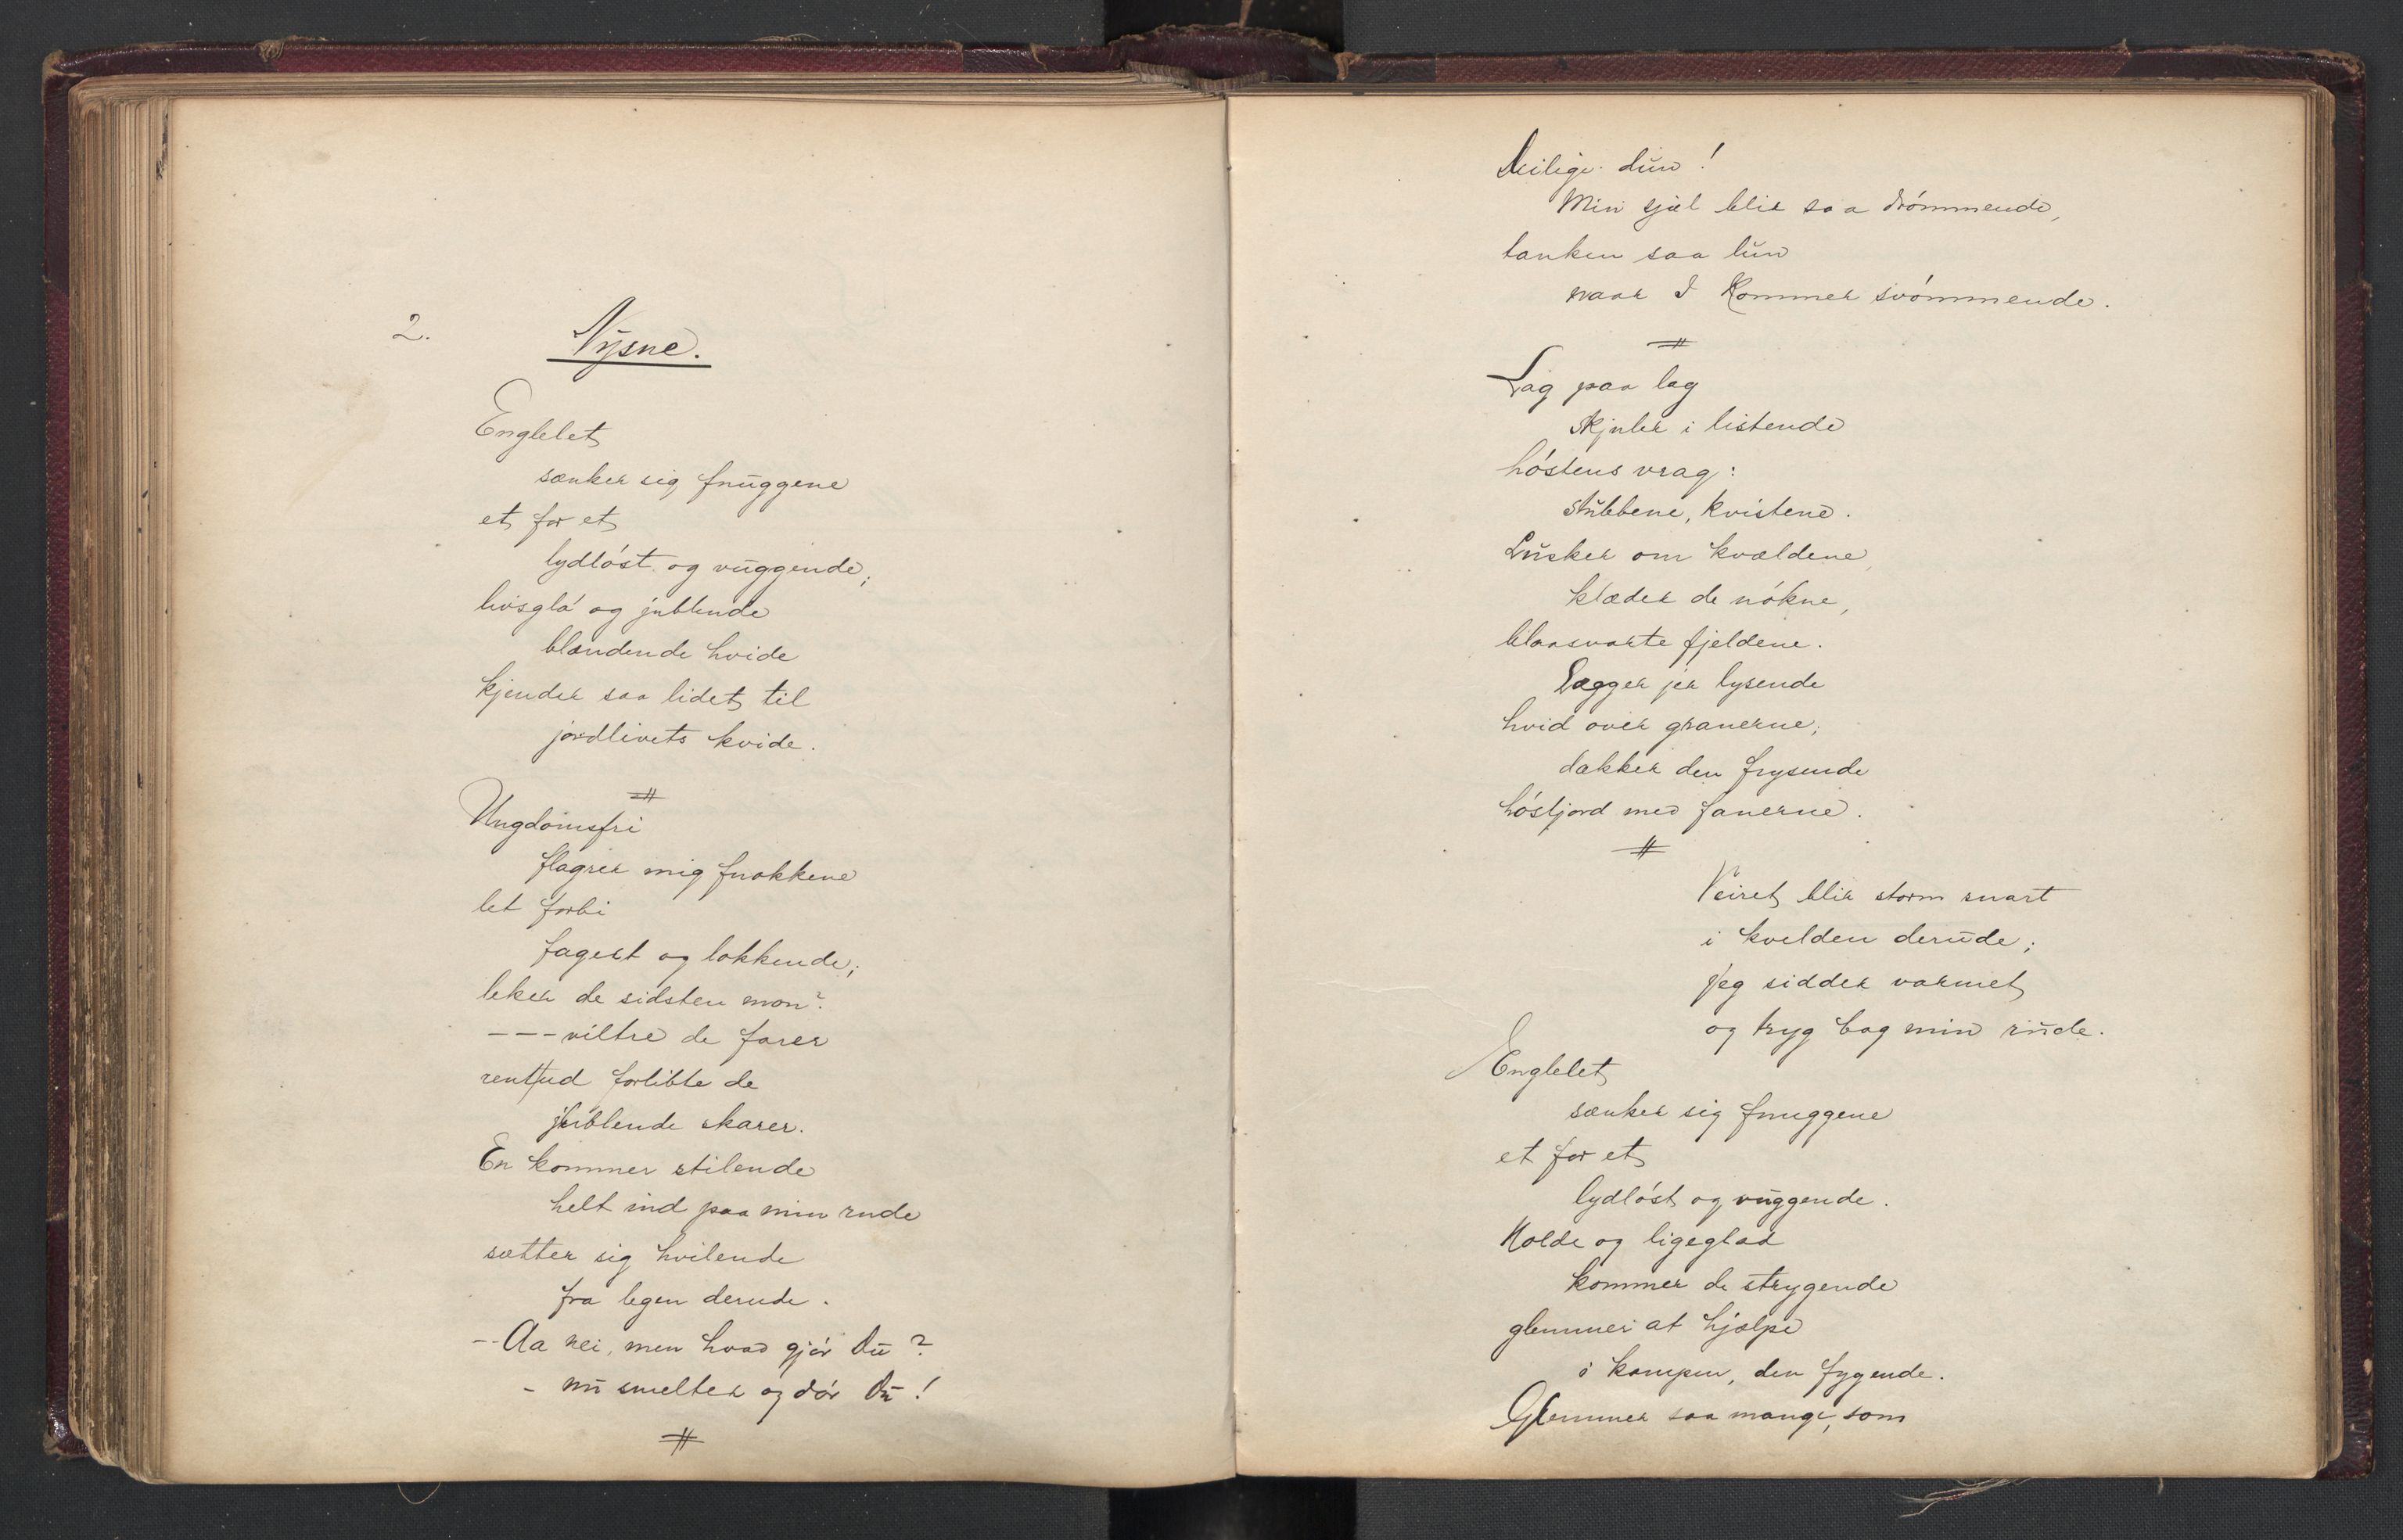 2.
Nysne.
Englelet
sænker sig fnuggene
et for et
lydløst og vuggende;
livsgla' og jublende
blændende hvide
kjender saa lidet til
jordlivets kvide.
#
Ungdomsfri
flagrer mig fnokkene
let forbi
fagert og lokkende;
leker de sidsten mon?
--- viltre de farer
rent ud forlibte de
jublende skarer.
En kommer stilende
helt ind paa min rude
sætter sig hvilende
fra legen derude.
-- Aa nei, men hvad gjør Du?
- nu smelter og dør Du!
#
Deilige dun!
Min sjæl blir saa drømmende,
tanken saa lun
naar I kommer svømmende.
#
Lag paa lag
skjuler i listende
høstens vrag:
stubbene, kvistene.
Lusker om kvældene,
klæder de nøkne,
blaasvarte fjeldene.
Lægger jer lysende
hvid over granerne;
dækker den frysende
høstjord med fanerne.
#
Veiret blir storm snart
i kvelden derude;
jeg sidder varmet
og tryg bag min rude.
Englelet
sænker sig fnuggene
et for et
lydløst og vuggende.
Kolde og ligeglad
kommer de strygende
glemmer at hjælpe
i kampen, den fygende.
Glemmer saa mange, som